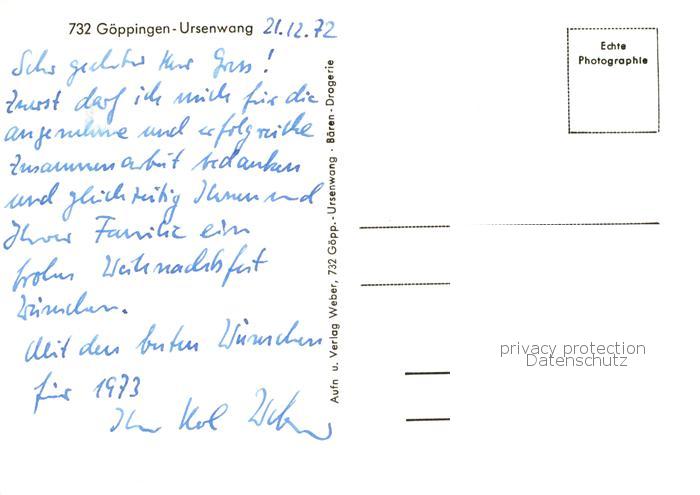 732 Göppingen-Ursenwang 21.12.72
Sehr geehrter Herr Gross!
Zuerst darf ich mich für die
angenehme und erfolgreiche
Zusammenarbeit bedanken
und gleichzeitig Ihnen und
Ihrer Familie ein
frohes Weihnachtsfest
wünschen.
Mit den besten Wünschen
für 1973
Ihr
Aufn u. Verlag Weber, 732 Göpp.-Ursenwang . Bären-Drogerie
Echte
Photographie
privacy protection
Datenschutz